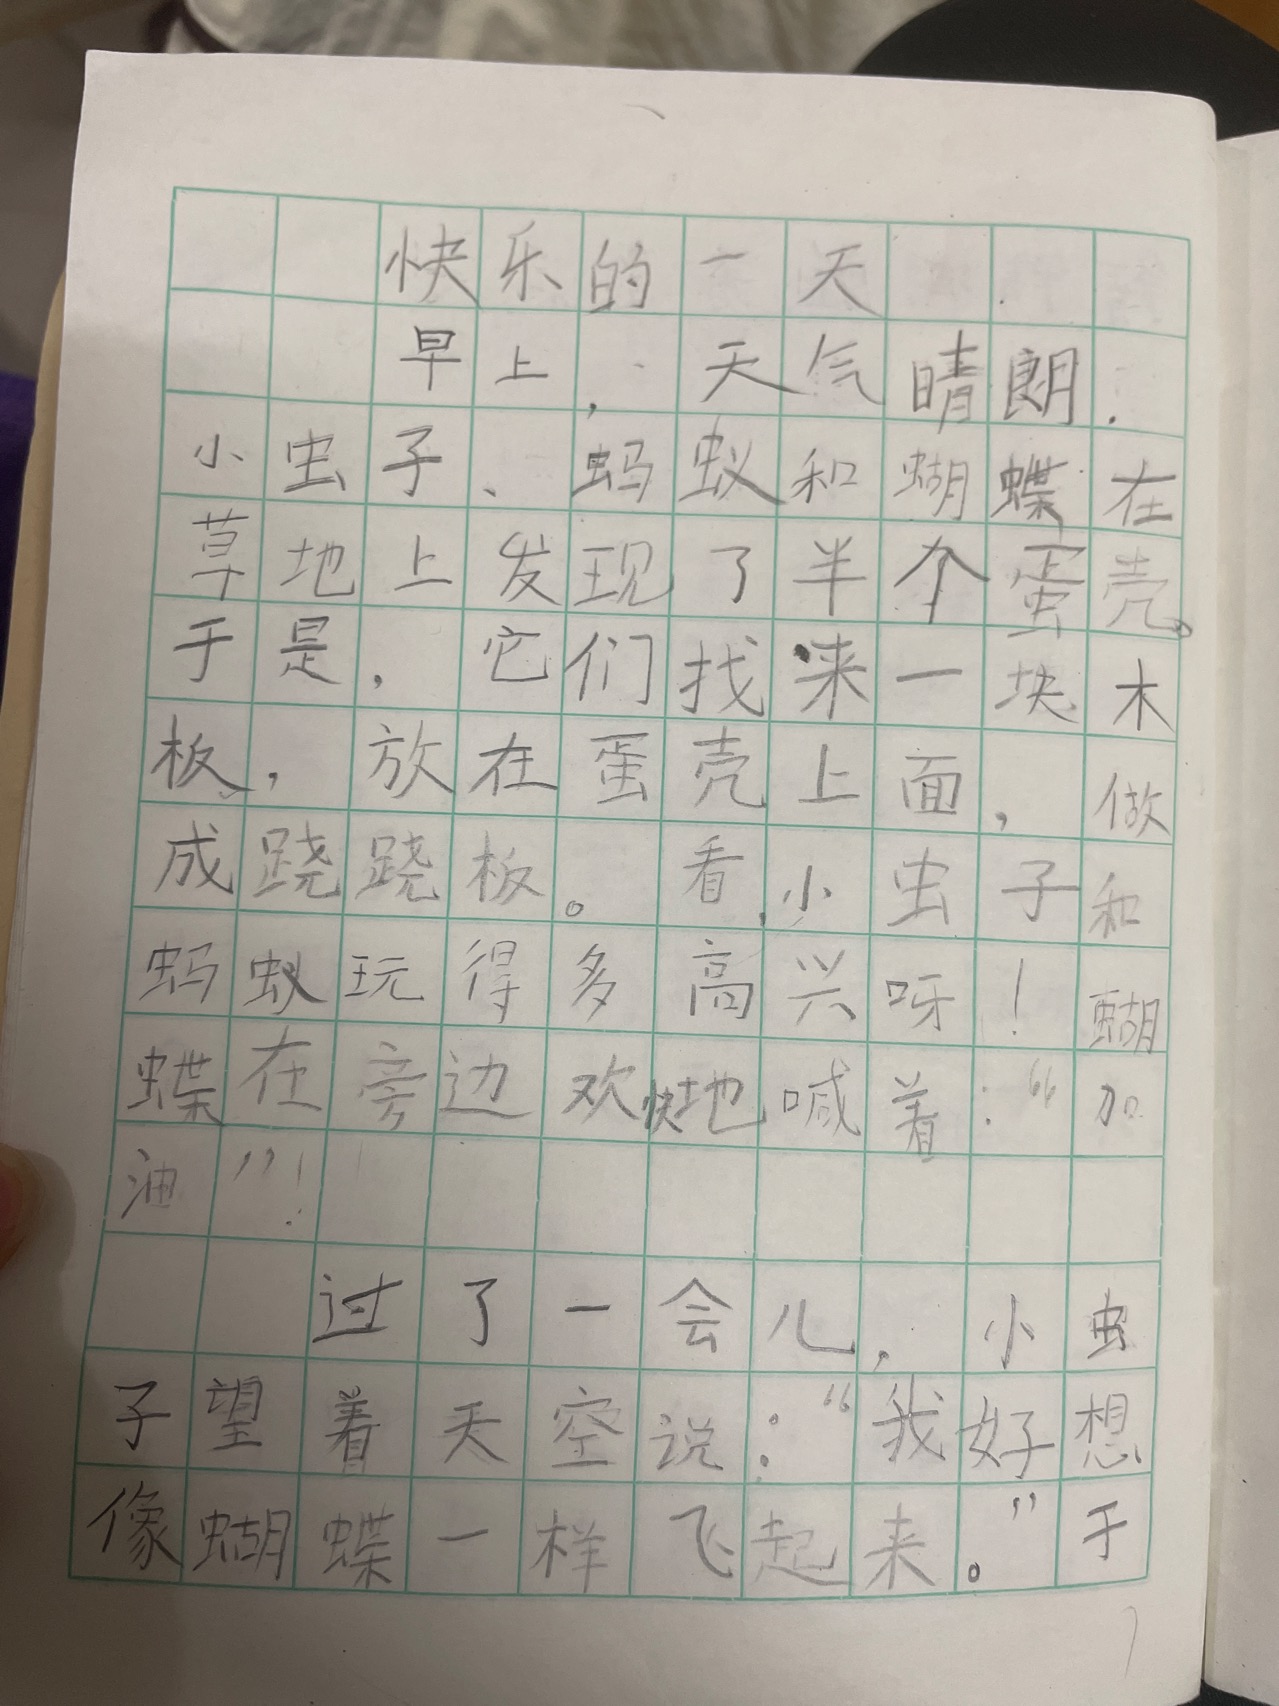 快乐的一天
早上，天气晴朗.
小虫子、蚂蚁和蝴蝶在
草地上发现了半个蛋壳。
于是，它们找来一块木
板，放在蛋壳上面，做
成跷跷板。看,小虫子和
蚂蚁玩得多高兴呀！蝴
蝶在旁边欢快地喊着：“加
油”！
过了一会儿，小虫
子望着天空说：“我好想
像蝴蝶一样飞起来。”于